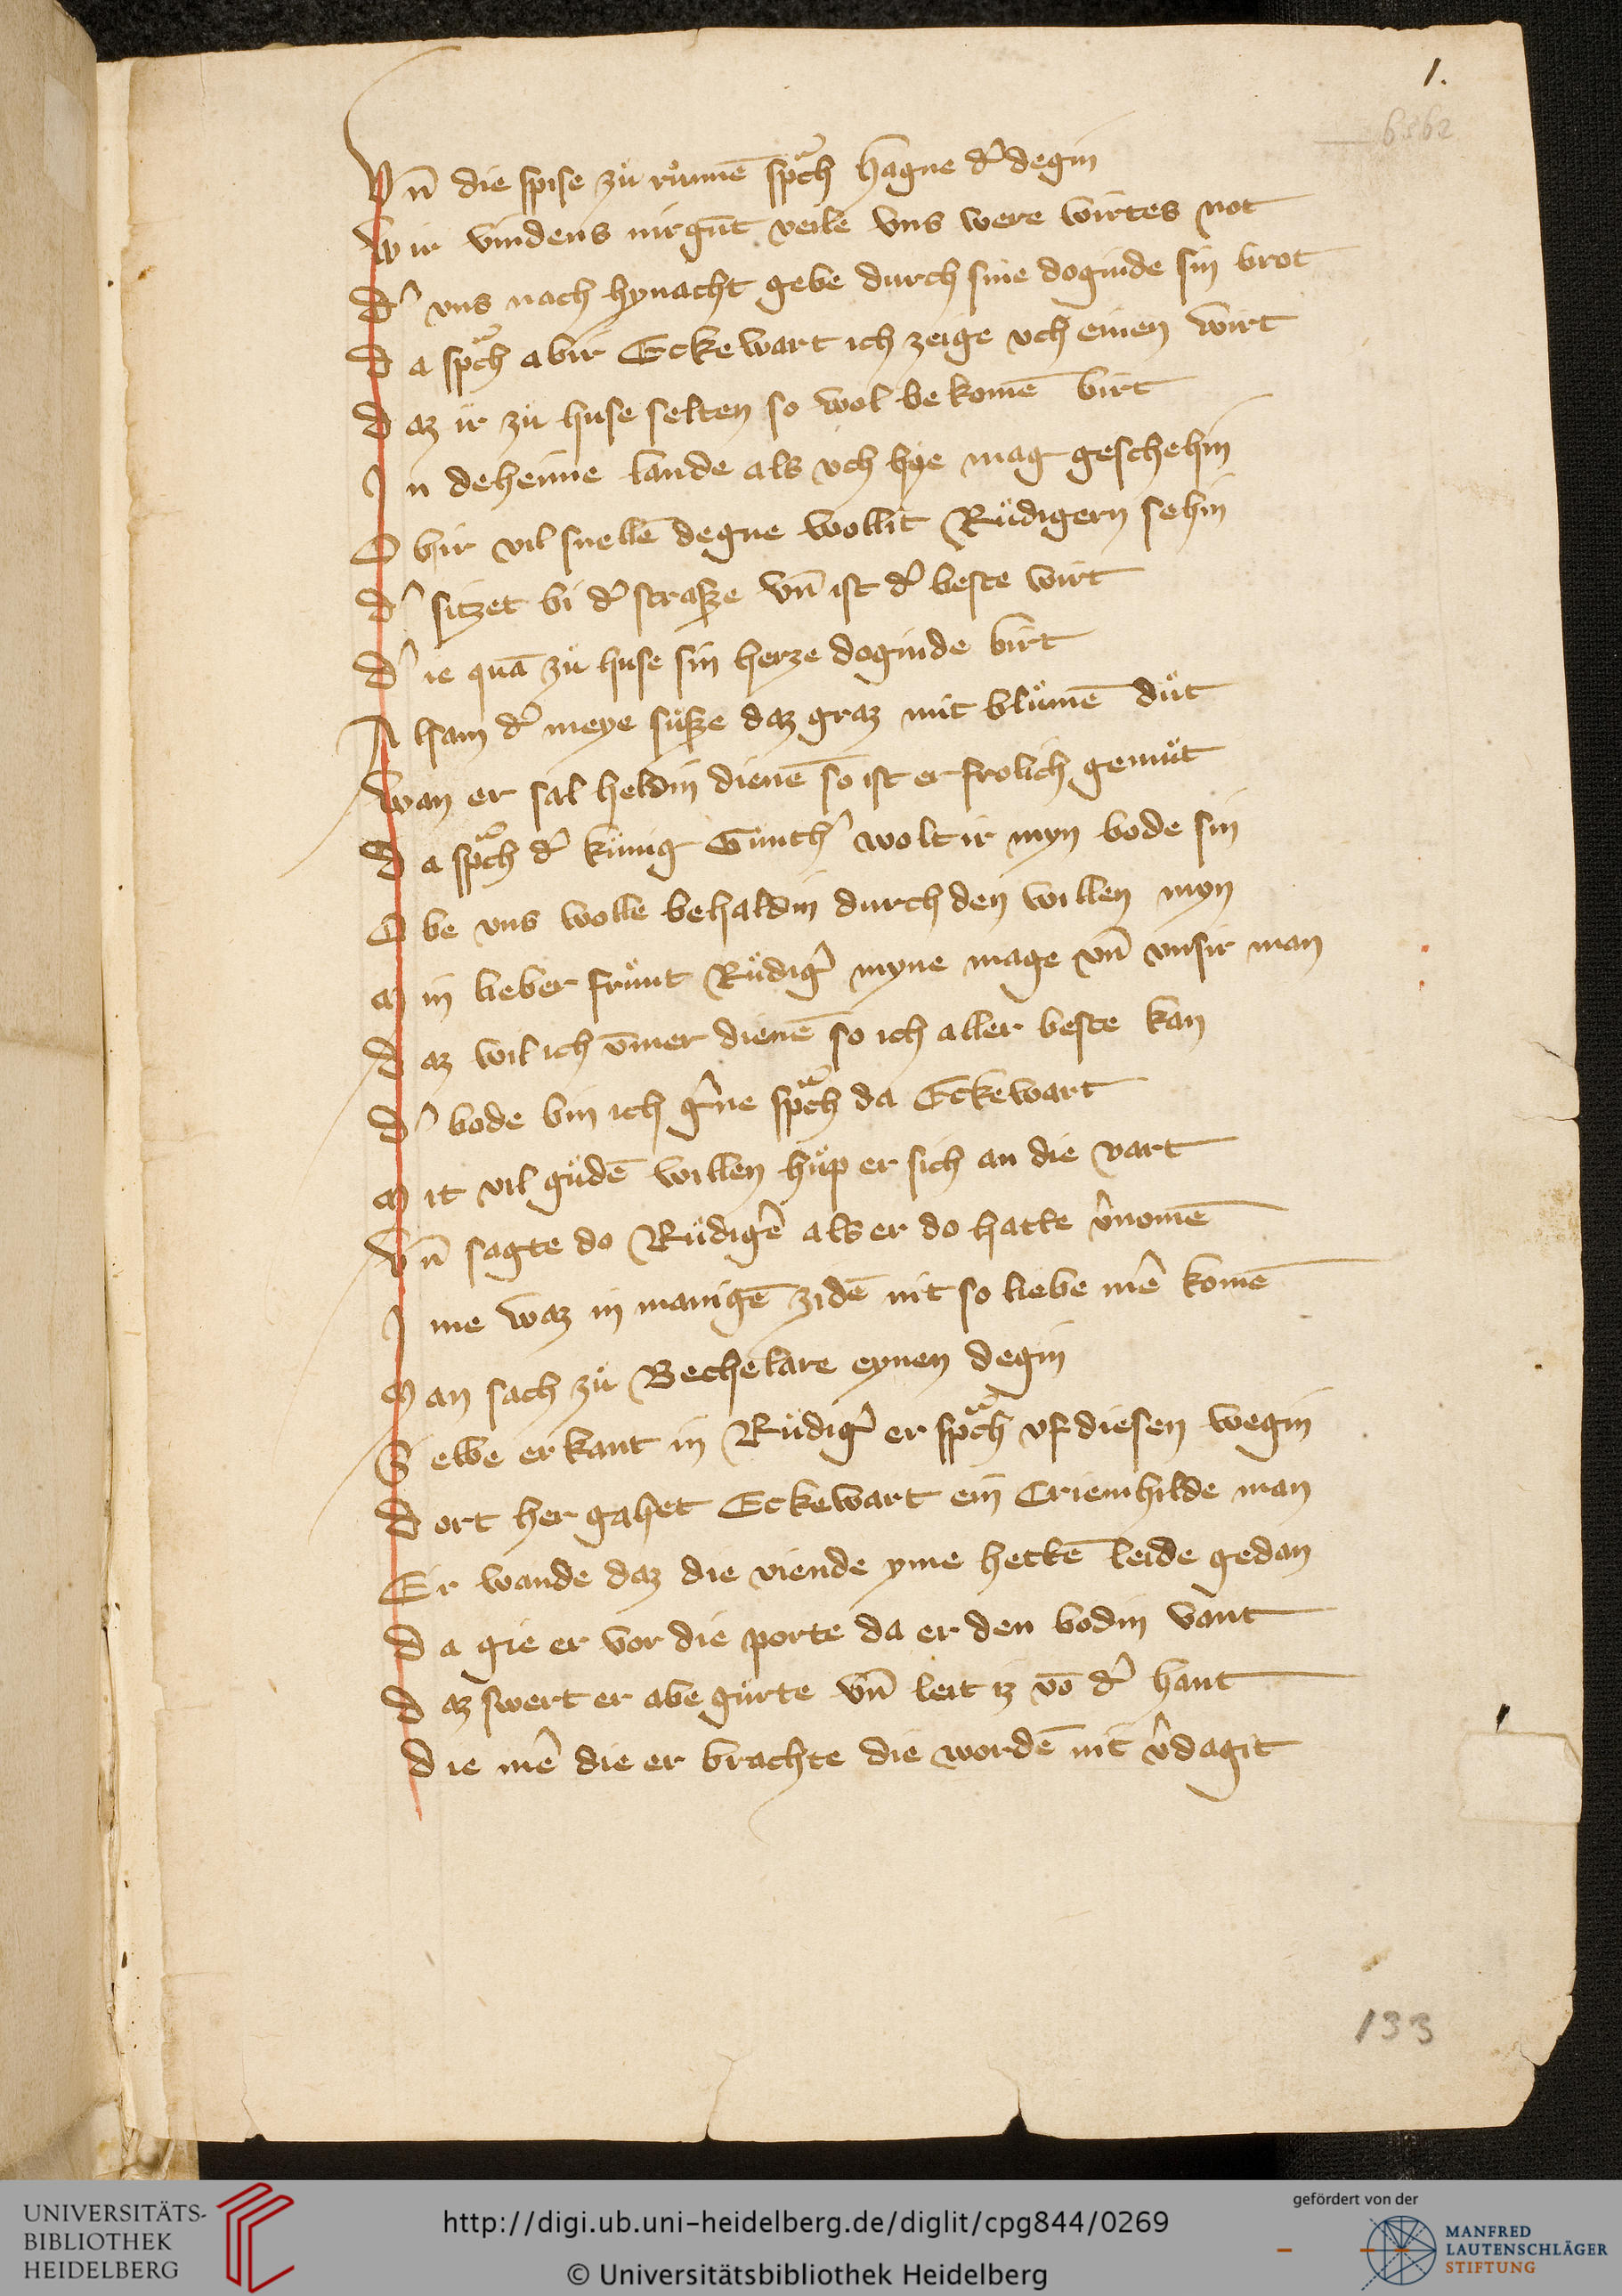 1.
6562
Vn̄ die spise zuͦ ruͦnnē spͣch hagne dʾ degin
Wir vindens nirgūt veile vns were wirtes not
Dʾ vns nach hynacht gebe durch sine doginde sin brot
Da spͣch abir Eckewart ich zeige vch einen wirt
Daz ir zuͦ huse selten so wol bekomē birt
In deheime lande als vch hye mag geschehin
Obir vil snellē degne wollit Ruͦdigern sehin
Dʾ sitzet bi dʾ strasze vn̄ ist dʾ beste wirt
Dʾ ie quā zuͦ huse sin herze doginde birt
Alsam dʾ meye suͦsze daz graz mit bluͦmē duͦt
Wan er sal heldin dienē so ist er frolich gemuͦt
Da spͣch dʾ kuͦnig Gunthʾ wolt ir myn bode sin
Obe vns wolle behaldin durch den willen myn
Min lieber fruͦnt Ruͦdigʾ myne mage vn̄ vnsir man
Daz wil ich v̄mer dienē so ich aller beste kan
Dʾ bode bin ich gʾne spͣch da Eckewart
Mit vil guͦdē willen huͦp er sich an die vart
Vn̄ sagte do Ruͦdigʾē als er do hatte vʾnomē
Ime waz in manigē zidē nit so liebe mēʾ komē
Man sach zuͦ Bechelare eynen degin
Selbe erkant in Ruͦdigʾ er spͣch vf diesen wegin
Dort her gahet Eckewart ein Criemhilde man
Er wande daz die viende yme hettē leide gedan
Da gie er vor die porte da er den bodin vant
Daz swert er abe guͦrte vn̄ leit iz vō dʾ hant
Die mēʾ die er brachte die wordē nit vʾdagit
133
UNIVERSITÄTS-
BIBLIOTHEK
HEIDELBERG
http://digi.ub.uni-heidelberg.de/diglit/cpg844/0269
© Universitätsbibliothek Heidelberg
gefördert von der
MANFRED
LAUTENSCHLÄGER
STIFTUNG